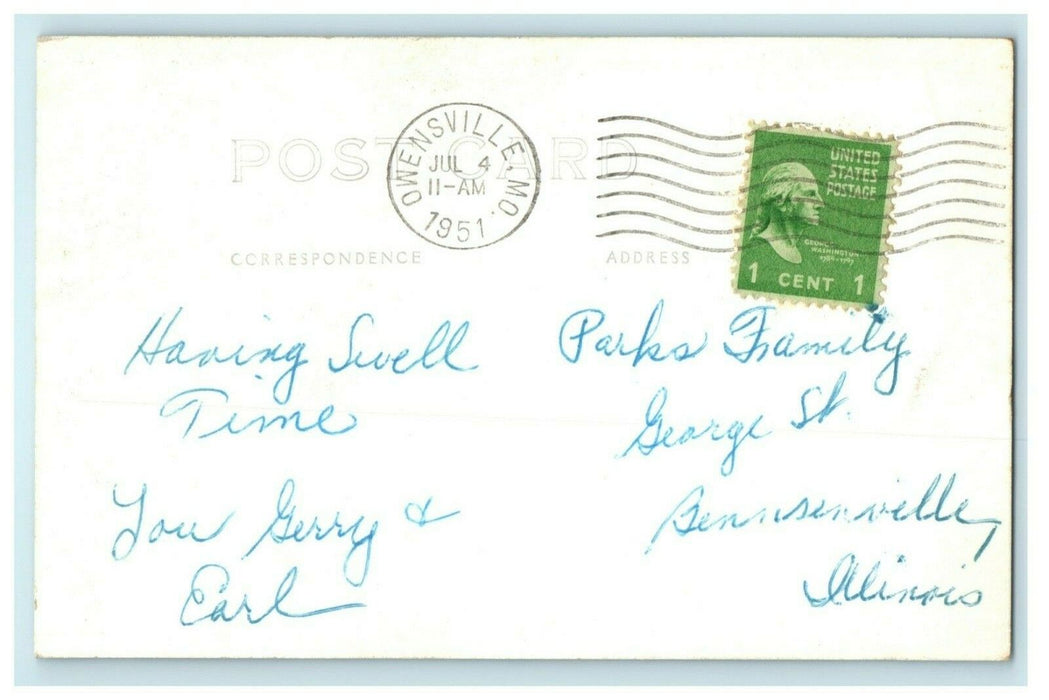 POST CARD
OWENSVILLE, MO.
JUL 4
11-AM
1951
UNITED
STATES
POSTAGE
GEORGE
WASHINGTON
1789-1797
1 CENT 1
CORRESPONDENCE
ADDRESS
Having Swell
Time
Lou Gerry &
Earl
Parks Family
George St.
Bennsenville,
Illinois